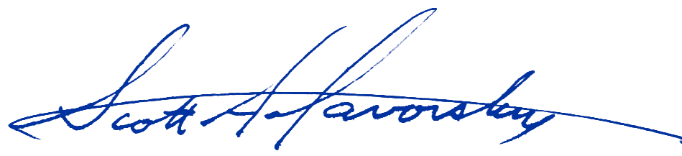 Scott A. Yavorsky